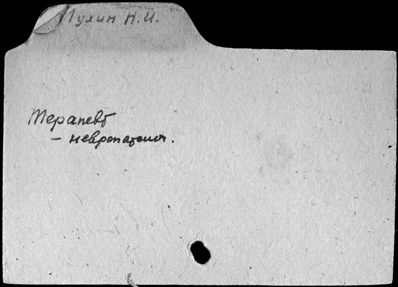 Пухин Н.И.
Терапевт
– невропатолог.